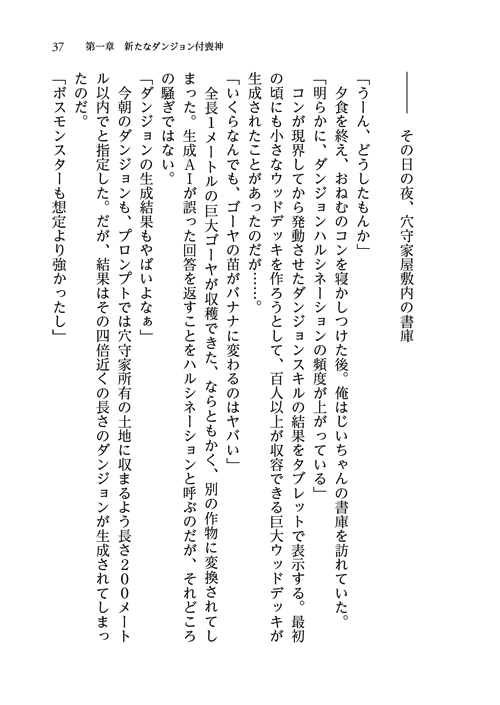 37　第一章　新たなダンジョン付喪神
――― その日の夜、穴守家屋敷内の書庫
「うーん、どうしたもんか」
　夕食を終え、おねむのコンを寝かしつけた後。俺はじいちゃんの書庫を訪れていた。
「明らかに、ダンジョンハルシネーションの頻度が上がっている」
　コンが現界してから発動させたダンジョンスキルの結果をタブレットで表示する。最初
の頃にも小さなウッドデッキを作ろうとして、百人以上が収容できる巨大ウッドデッキが
生成されたことがあったのだが……。
「いくらなんでも、ゴーヤの苗がバナナに変わるのはヤバい」
　全長１メートルの巨大ゴーヤが収穫できた、ならともかく、別の作物に変換されてし
まった。生成ＡＩが誤った回答を返すことをハルシネーションと呼ぶのだが、それどころ
の騒ぎではない。
「ダンジョンの生成結果もやばいよなぁ」
　今朝のダンジョンも、プロンプトでは穴守家所有の土地に収まるよう長さ２００メート
ル以内でと指定した。だが、結果はその四倍近くの長さのダンジョンが生成されてしまっ
たのだ。
「ボスモンスターも想定より強かったし」